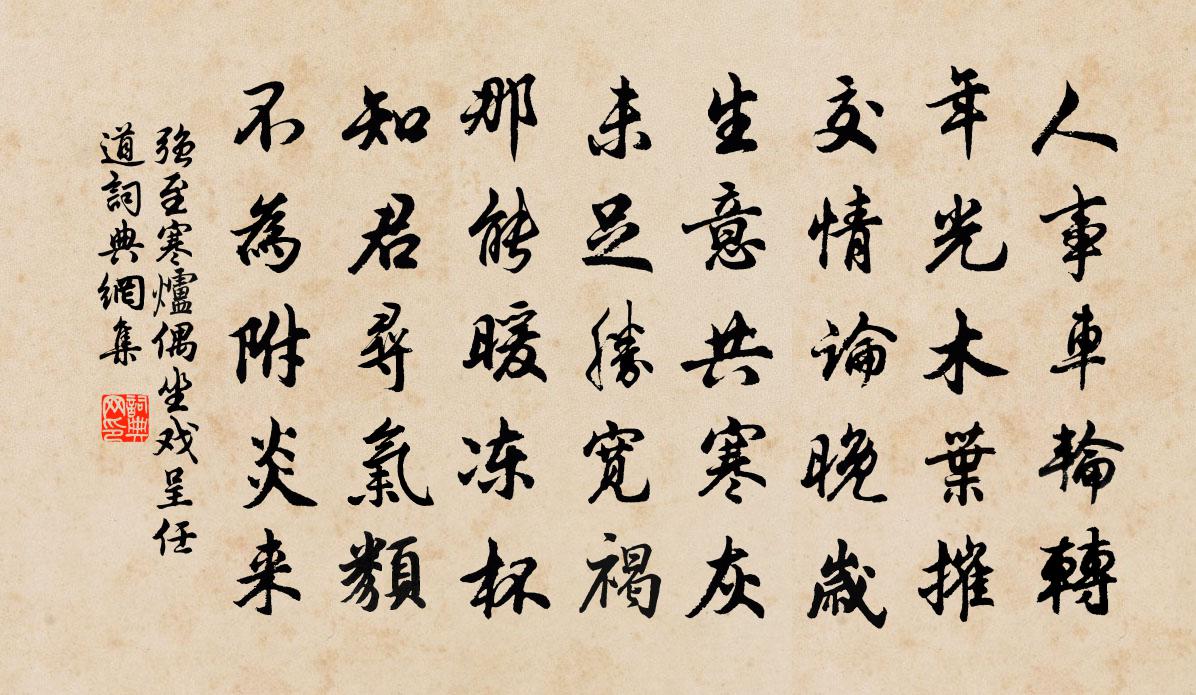 人事車輪轉
年光木葉摧
交情論晚歲
生意共寒灰
未足勝寬褐
那能暖冻杯
知君尋氣類
不為附炎来
強至寒爐偶坐戏呈任
道詞典網集
詞典
网印